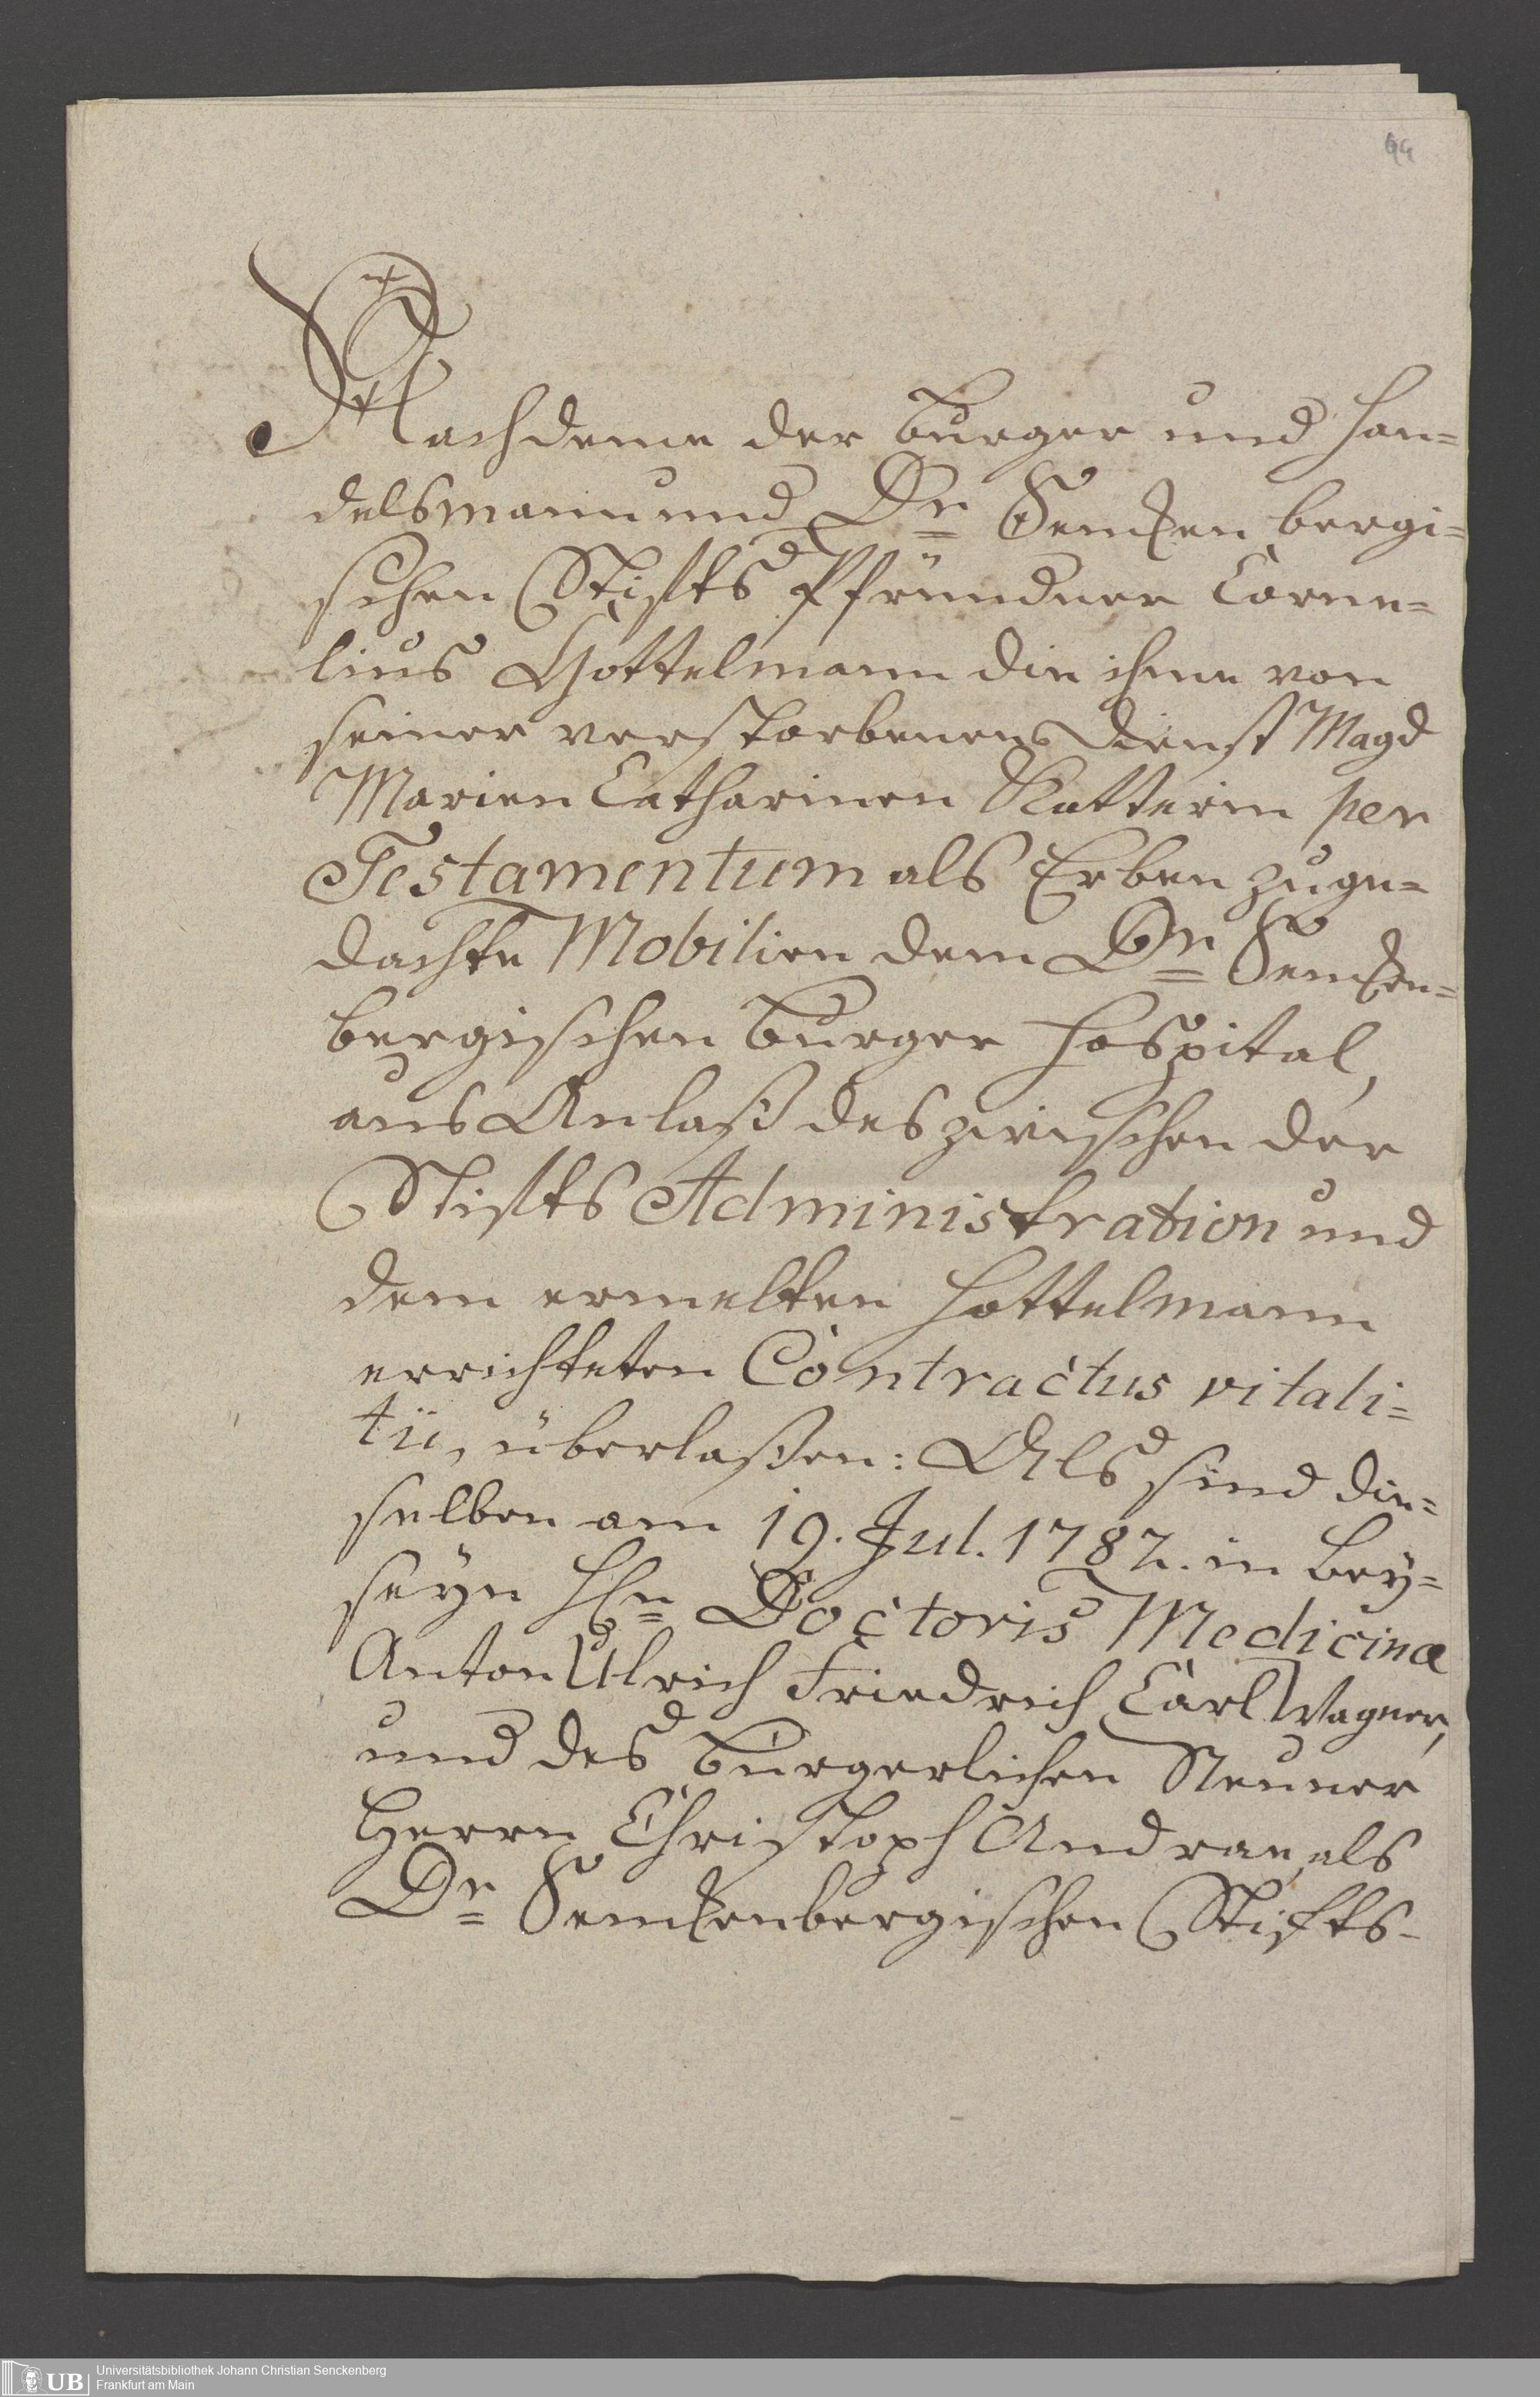 44
Nachdeme der Burger und Han=
delsmann und Dr Senckenbergi=
schen Stifts Pfründner Corne=
lius Gottelmann die ihme von
seiner verstorbenen Dienst Magd
Marien Catharinen Katterin per
Testamentum als Erben zuge=
dachte Mobilien dem Dr Sencken=
bergischen Burger Hospital,
aus Anlaß des zwischen der
Stifts Administration und
dem ermelten Hottelmann
errichteten Contractus vitali=
tii, überlaßen: Als sind die=
selben am 19. Jul. 1787. in bey=
seyn Hn Doctoris Medicinæ
Anton Ulrich Friedrich Carl Wagner,
und des burgerlichen Neuner
Herrn Christoph Andreae, als
Dr Senckenbergischen Stifts-
UB
Universitätsbibliothek Johann Christian Senckenberg
Frankfurt am Main